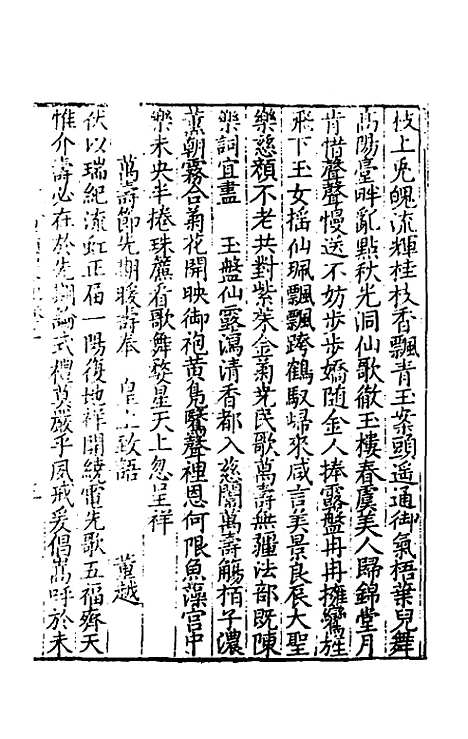 枝上兎魄流輝桂枝香飄青玉案頭遥通御氣梧葉兒舞
髙陽臺畔亂點秋光洞仙歌徹玉樓春虞美人歸錦堂月
肯惜聲聲慢送不妨步步嬌隨金人捧露盤冉冉擁鸞旌
飛下玉女揺仙珮飄飄跨鶴馭歸來咸言美景良辰大聖
樂慈顔不老共對紫茱金菊羌民歌萬壽無疆法部既陳
樂詞宜盡　玉盤仙露瀉清香都入慈闈萬壽觴栢子濃
薰朝霧合菊花開映御袍黄鳬鷖聲裡恩何限魚藻宫中
樂未央半捲珠簾看歌舞婺星天上忽呈祥
萬壽節先期暖壽奉　皇上致語　　董越
伏以瑞紀流虹正届一陽復地祥開繞電先歌五福齊天
惟介壽心在於先期論式禮莫嚴乎夙戒爰倡嵩呼於未